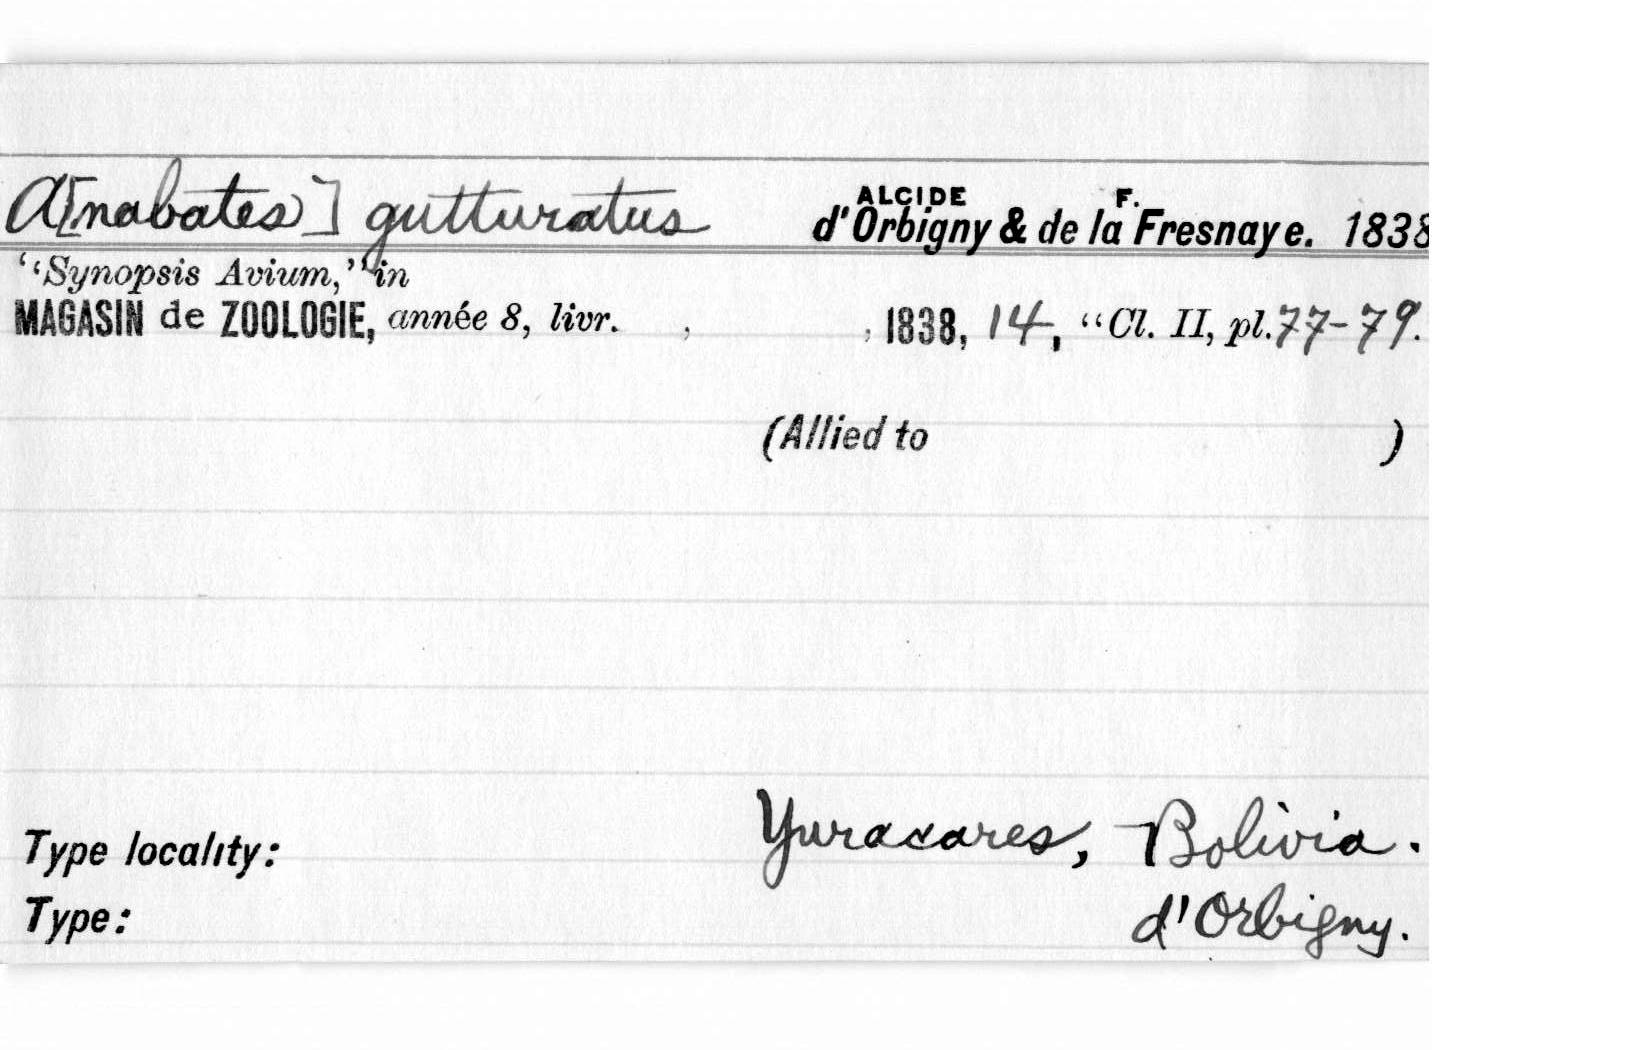 A[nabates] gutturatus ALCIDE d'Orbigny & de la F. Fresnaye. 1838
"Synopsis Avium," in
MAGASIN de ZOOLOGIE, année 8, livr. , , 1838, 14, "Cl. II, pl. 77-79.
(Allied to )
Type locality: Yuracares, Bolivia.
Type: d'Orbigny.